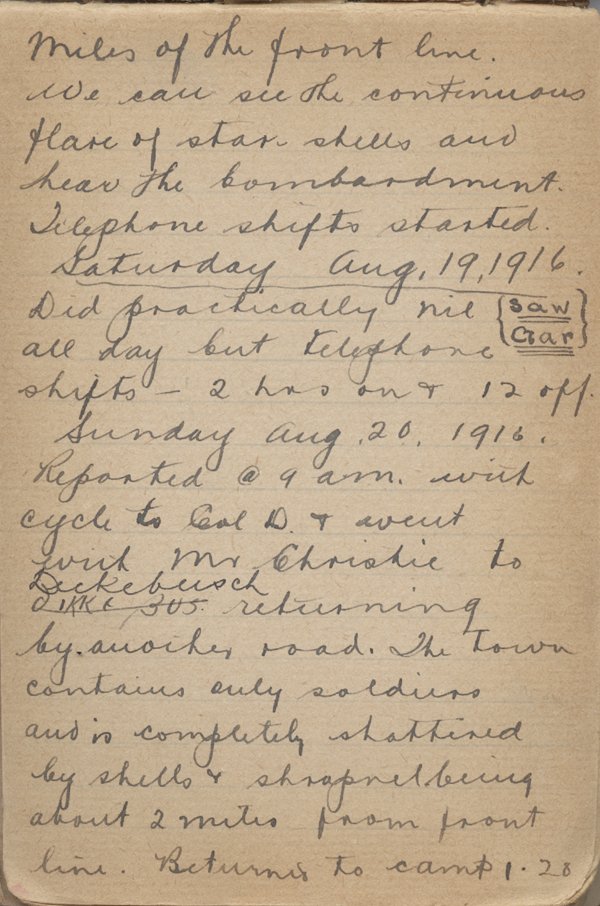 Miles of the front line.
We can see the continuous
flare of star shells and
hear the bombardment.
Telephone shifts started.
Saturday Aug, 19, 1916.
Did practically nil {saw
all day but telephone Gar}
shifts - 2 hrs on & 12 off.
Sunday Aug. 20, 1916.
Reported @ 9 a m. with
cycle to Col D. & went
with Mr Christie to
Dickebusch
returning
by another road. The town
contains only soldiers
and is completely shattered
by shells & shrapnel being
about 2 miles from front
line. Returned to camp 1.20